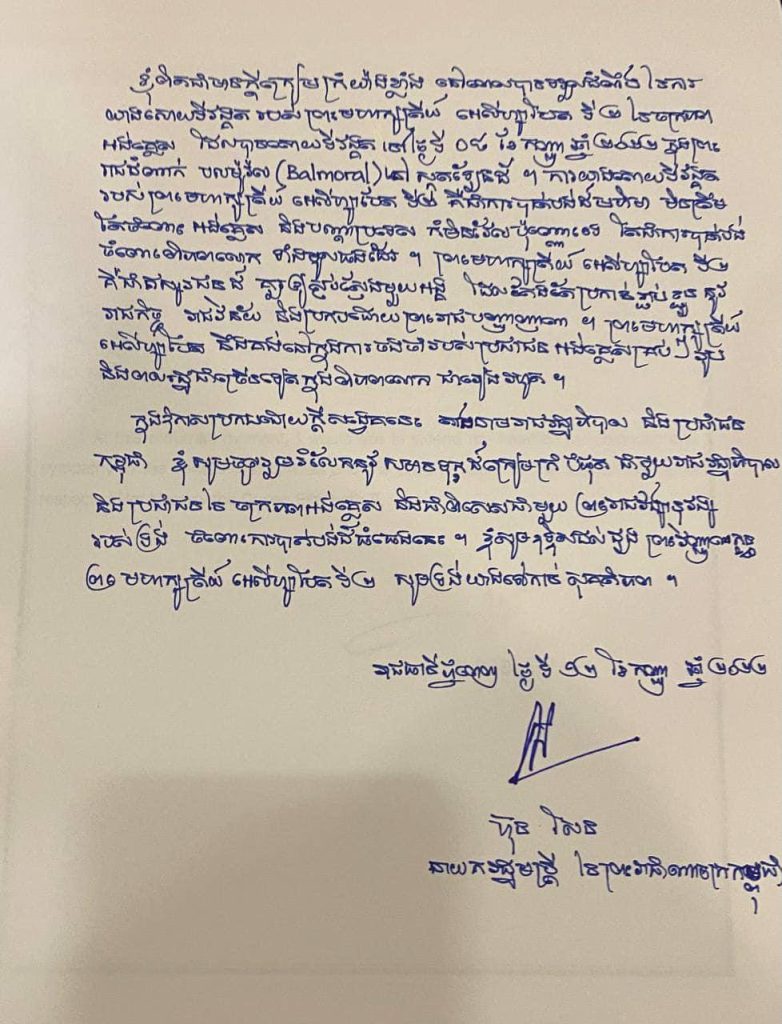 ខ្ញុំពិតជាមានក្តីក្រៀមក្រំយ៉ាងខ្លាំង នៅពេលបានទទួលដំណឹង នៃការ
យាងសោយទីវង្គត របស់ព្រះមហាក្សត្រីយ៍ អេលីហ្សាបែត ទី២ នៃចក្រភព
អង់គ្លេស ដែលបានសោយទីវង្គត នៅថ្ងៃទី ០៨ ខែ កញ្ញា ឆ្នាំ ២០២២ ក្នុងព្រះ
រាជដំណាក់ បលម៉ូរ៉ល (Balmoral) នៅ ស្កុតឡែនដ៍ ។ ការយាងសោយទីវង្គត
របស់ព្រះមហាក្សត្រីយ៍ អេលីហ្សាបែត ទី២ គឺជាការបាត់បង់ដ៏មហិមា មិនត្រឹម
តែចំពោះ អង់គ្លេស និងបណ្តាប្រទេស ប៉ុណ្ណោះទេ តែជាការបាត់បង់
ចំពោះពិភពលោក ទាំងមូលផងដែរ ។ ព្រះមហាក្សត្រីយ៍ អេលីហ្សាបែត ទី២
គឺជា ដ៏ គួរឲ្យស្ងប់ស្ងែងមួយអង្គ ដែលតែងតែប្រកាន់ខ្ជាប់ខ្ជួន នូវ
រាជកិច្ច រាជវិន័យ និងប្រកបដោយព្រះរាជបញ្ញាញាណ ។ ព្រះមហាក្សត្រីយ៍
អេលីហ្សាបែត នឹងគង់នៅក្នុងការចងចាំរបស់ប្រជាជន អង់គ្លេសគ្រប់ៗរូប
និងមនុស្សជាច្រើនទៀតក្នុងពិភពលោក ជារៀងរហូត ។
ក្នុងឱកាសប្រកបដោយក្តីសង្វេគនេះ តាងនាមរាជរដ្ឋាភិបាល និង ប្រជាជន
កម្ពុជា ខ្ញុំ សូមចូលរួមរំលែកនូវ សមានទុក្ខដ៏ក្រៀមក្រំ បំផុត ជាមួយរាជរដ្ឋាភិបាល
និង ប្រជាជននៃ ចក្រភពអង់គ្លេស និងជាពិសេសជាមួយ ព្រះរាជវង្សានុវង្ស
របស់ទ្រង់ ចំពោះការបាត់បង់ដ៏ធំធេងនេះ ។ ខ្ញុំសូមឧទ្ទិសដល់ដួង ព្រះវិញ្ញាណក្ខន្ធ
ព្រះមហាក្សត្រីយ៍ អេលីហ្សាបែត ទី២ សូមទ្រង់យាងទៅកាន់ សុគតិភព ។
រាជធានីភ្នំពេញ ថ្ងៃ ទី ១២ ខែ កញ្ញា ឆ្នាំ ២០២២
ហ៊ុន សែន
នាយករដ្ឋមន្ត្រី នៃព្រះរាជាណាចក្រកម្ពុជា